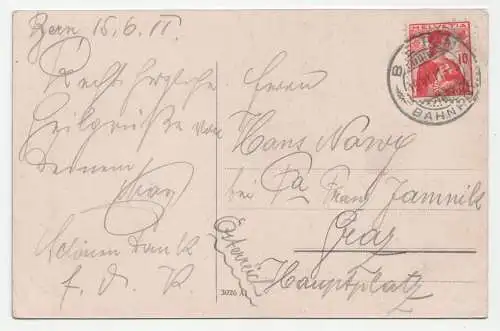 Bern 15.6.11.
Recht herzliche
Heilgrüße von
Deinem
Schönen Dank
f. d. K.
Herrn
Hans Nawy
bei Fa Franz Jamnik
Graz
Hauptplatz
Österreich
HELVETIA
10
BAHNH
3026